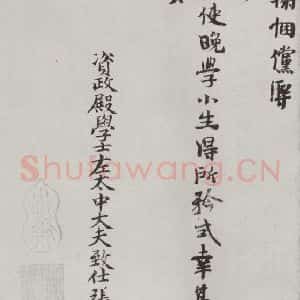 使晚學小生得所矜式幸甚
資政殿學士左太中大夫致仕張
Shufawang.CN